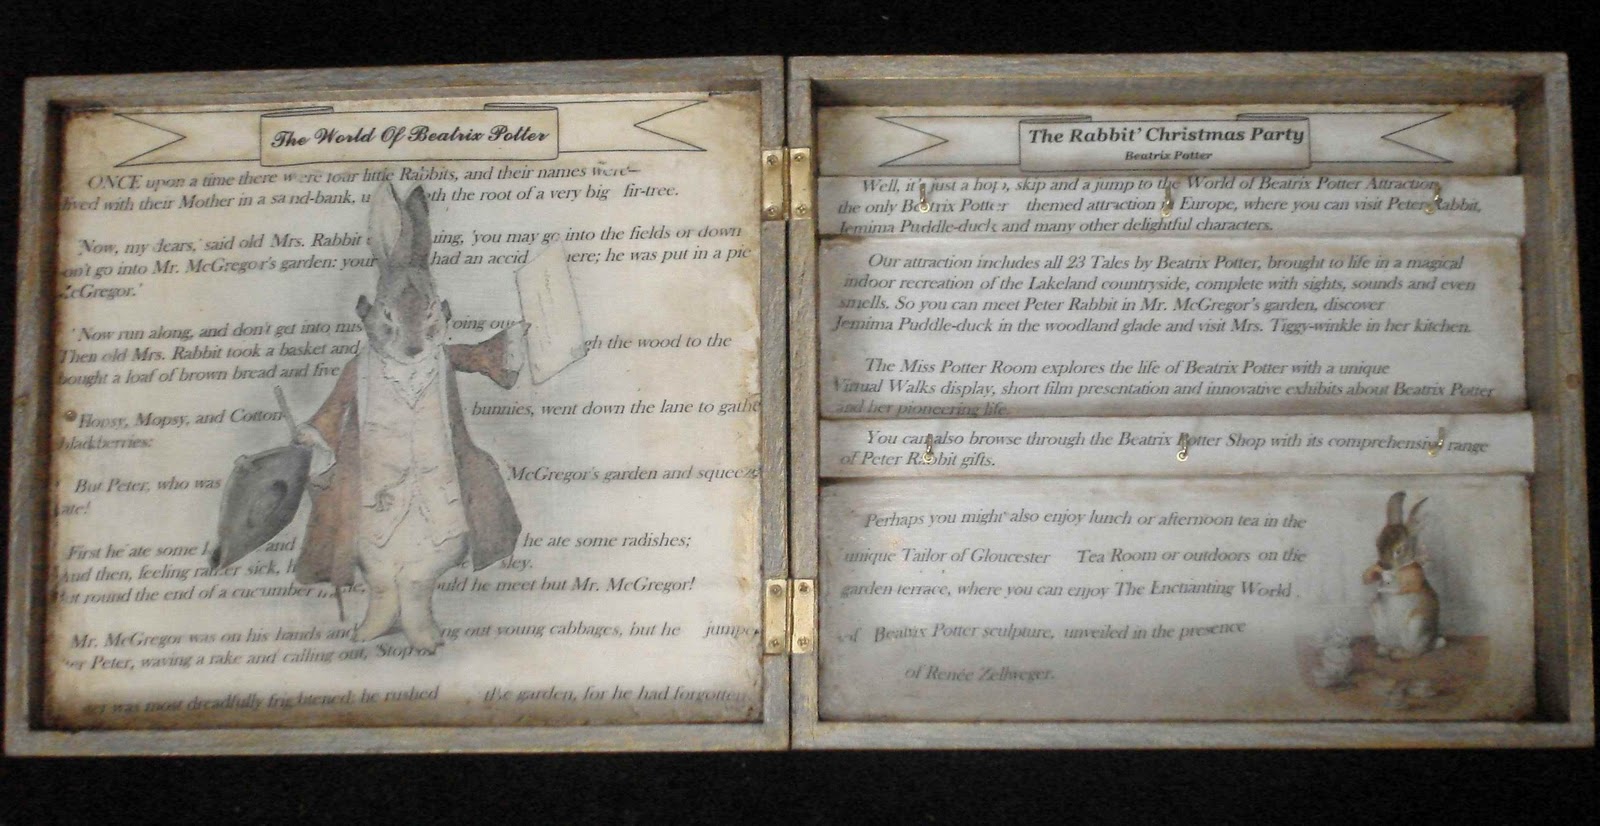 The World Of Beatrix Potter
ONCE upon a time there were four little Rabbits, and their names were—
lived with their Mother in a sand-bank, the root of a very big fir-tree.
'Now, my dears,' said old Mrs. Rabbit 'you may go into the fields or down
don't go into Mr. McGregor's garden: your had an accid here; he was put in a pie
McGregor.'
'Now run along, and don't get into mis oing out
Then old Mrs. Rabbit took a basket and gh the wood to the
bought a loaf of brown bread and five
Flopsy, Mopsy, and Cotton- bunnies, went down the lane to gathe
blackberries:
But Peter, who was McGregor's garden and squeeze
ate!
First he ate some and he ate some radishes;
And then, feeling rather sick, sley.
But round the end of a cucumber ould he meet but Mr. McGregor!
Mr. McGregor was on his hands and ng out young cabbages, but he jumpe
er Peter, waving a rake and calling out, 'Stop
ter was most dreadfully frightened; he rushed the garden, for he had forgotten
The Rabbit' Christmas Party
Beatrix Potter
Well, it's just a hop, skip and a jump to the World of Beatrix Potter Attraction,
the only Beatrix Potter themed attraction in Europe, where you can visit Peter Rabbit,
Jemima Puddle-duck and many other delightful characters.
Our attraction includes all 23 Tales by Beatrix Potter, brought to life in a magical
indoor recreation of the Lakeland countryside, complete with sights, sounds and even
smells. So you can meet Peter Rabbit in Mr. McGregor's garden, discover
Jemima Puddle-duck in the woodland glade and visit Mrs. Tiggy-winkle in her kitchen.
The Miss Potter Room explores the life of Beatrix Potter with a unique
Virtual Walks display, short film presentation and innovative exhibits about Beatrix Potter
and her pioneering life.
You can also browse through the Beatrix Potter Shop with its comprehensive range
of Peter Rabbit gifts.
Perhaps you might also enjoy lunch or afternoon tea in the
unique Tailor of Gloucester Tea Room or outdoors on the
garden terrace, where you can enjoy The Enchanting World
of Beatrix Potter sculpture, unveiled in the presence
of Renée Zellweger.